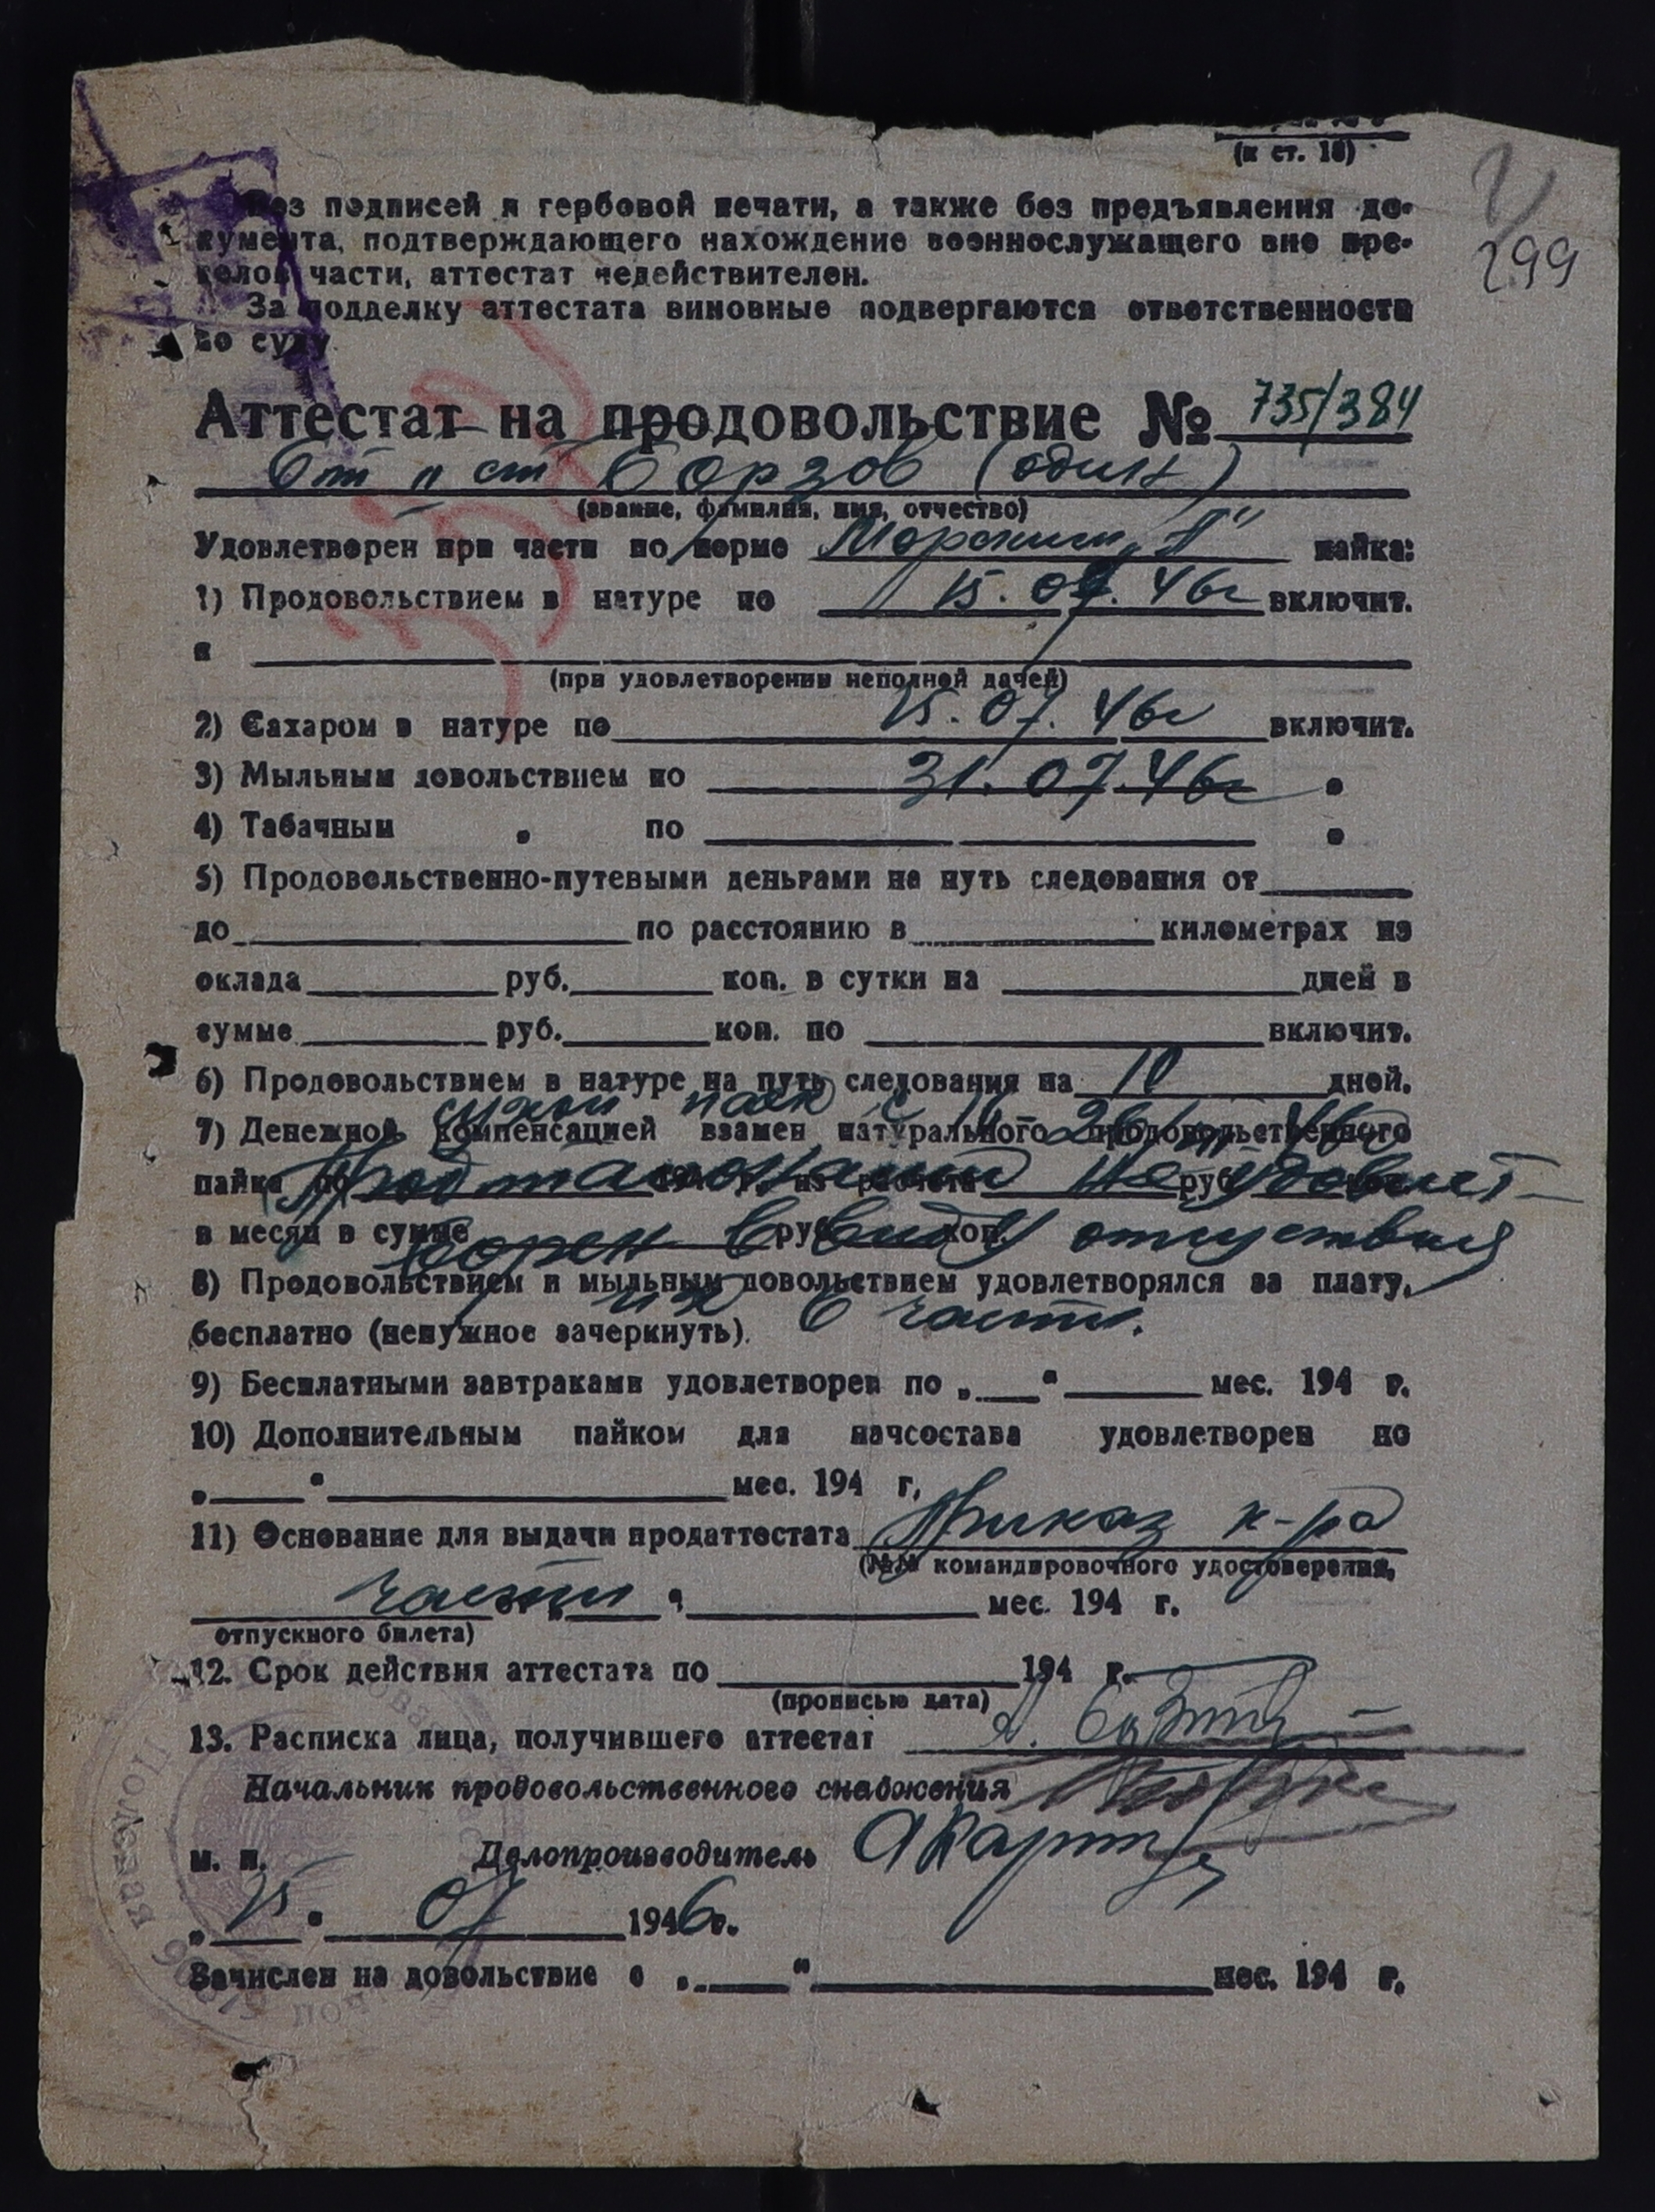 (к ст. 18)
299
Без подписей и гербовой печати, а также без предъявления до-
кумента, подтверждающего нахождение военнослужащего вне пре-
делов части, аттестат недействителен.
За подделку аттестата виновные подвергаются ответственности
по суду.
Аттестат на продовольствие № 735/384
Борзов (один)
(звание, фамилия, имя, отчество)
Удовлетворен при части по норме Морским пайка:
1) Продовольствием в натуре по 15. 07. 46г включит.
и
(при удовлетворении неполной дачей)
2) Сахаром в натуре по 15. 07. 46г включит.
3) Мыльным довольствием по 31. 07. 46г „
4) Табачным „ по „
5) Продовольственно-путевыми деньгами на путь следования от
до по расстоянию в километрах из
оклада руб. коп. в сутки на дней в
сумме руб. коп. по включит.
6) Продовольствием в натуре на путь следования на 10 дней.
сухой паёк с
7) Денежной компенсацией взамен натурального продовольственного
пайка по 194 г. из расчета руб.
Продталонами не удовлет-
в месяц в сумме руб. коп.
ворен ввиду отсуствия
8) Продовольствием и мыльным довольствием удовлетворялся за плату,
их в части.
бесплатно (ненужное зачеркнуть).
9) Бесплатными завтраками удовлетворен по „ “ мес. 194 г.
10) Дополнительным пайком для начсостава удовлетворен по
„ “ мес. 194 г.
11) Основание для выдачи продаттестата Приказ к-ра
(№№ командировочного удостоверения,
части “ мес. 194 г.
отпускного билета)
12. Срок действия аттестата по 194 г.
(прописью дата)
13. Расписка лица, получившего аттестат
Начальник продовольственного снабжения
м. п. Делопроизводитель
„15“ 07 1946г.
Зачислен на довольствие с „ “ мес. 194 г.